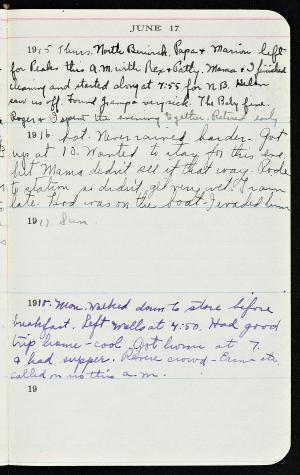 JUNE 17
1915 Thurs. North Berwick. Papa & Marion left
for Peaks this A.M. with Rex & Patty. Mama & I finished
cleaning and started along at 4:55 for N.B. Helen
saw us off. Found Grampa very sick. The Baby fine.
Roger & I spent the evening together. Retired early
1916. Sat. Never rained harder. Got
up at 10. Wanted to stay for this eve
but Mama didn't see it that way. Rode
to station so didn't get very wet. Train
late. Hod was on the boat - I evaded him
1917 Sun.
1918. Mon. Walked down to store before
breakfast. Left Wells at 4:50. Had good
trip home - cool. Got home at 7.
& had supper. Revere crowd -
called on us this a.m.
19